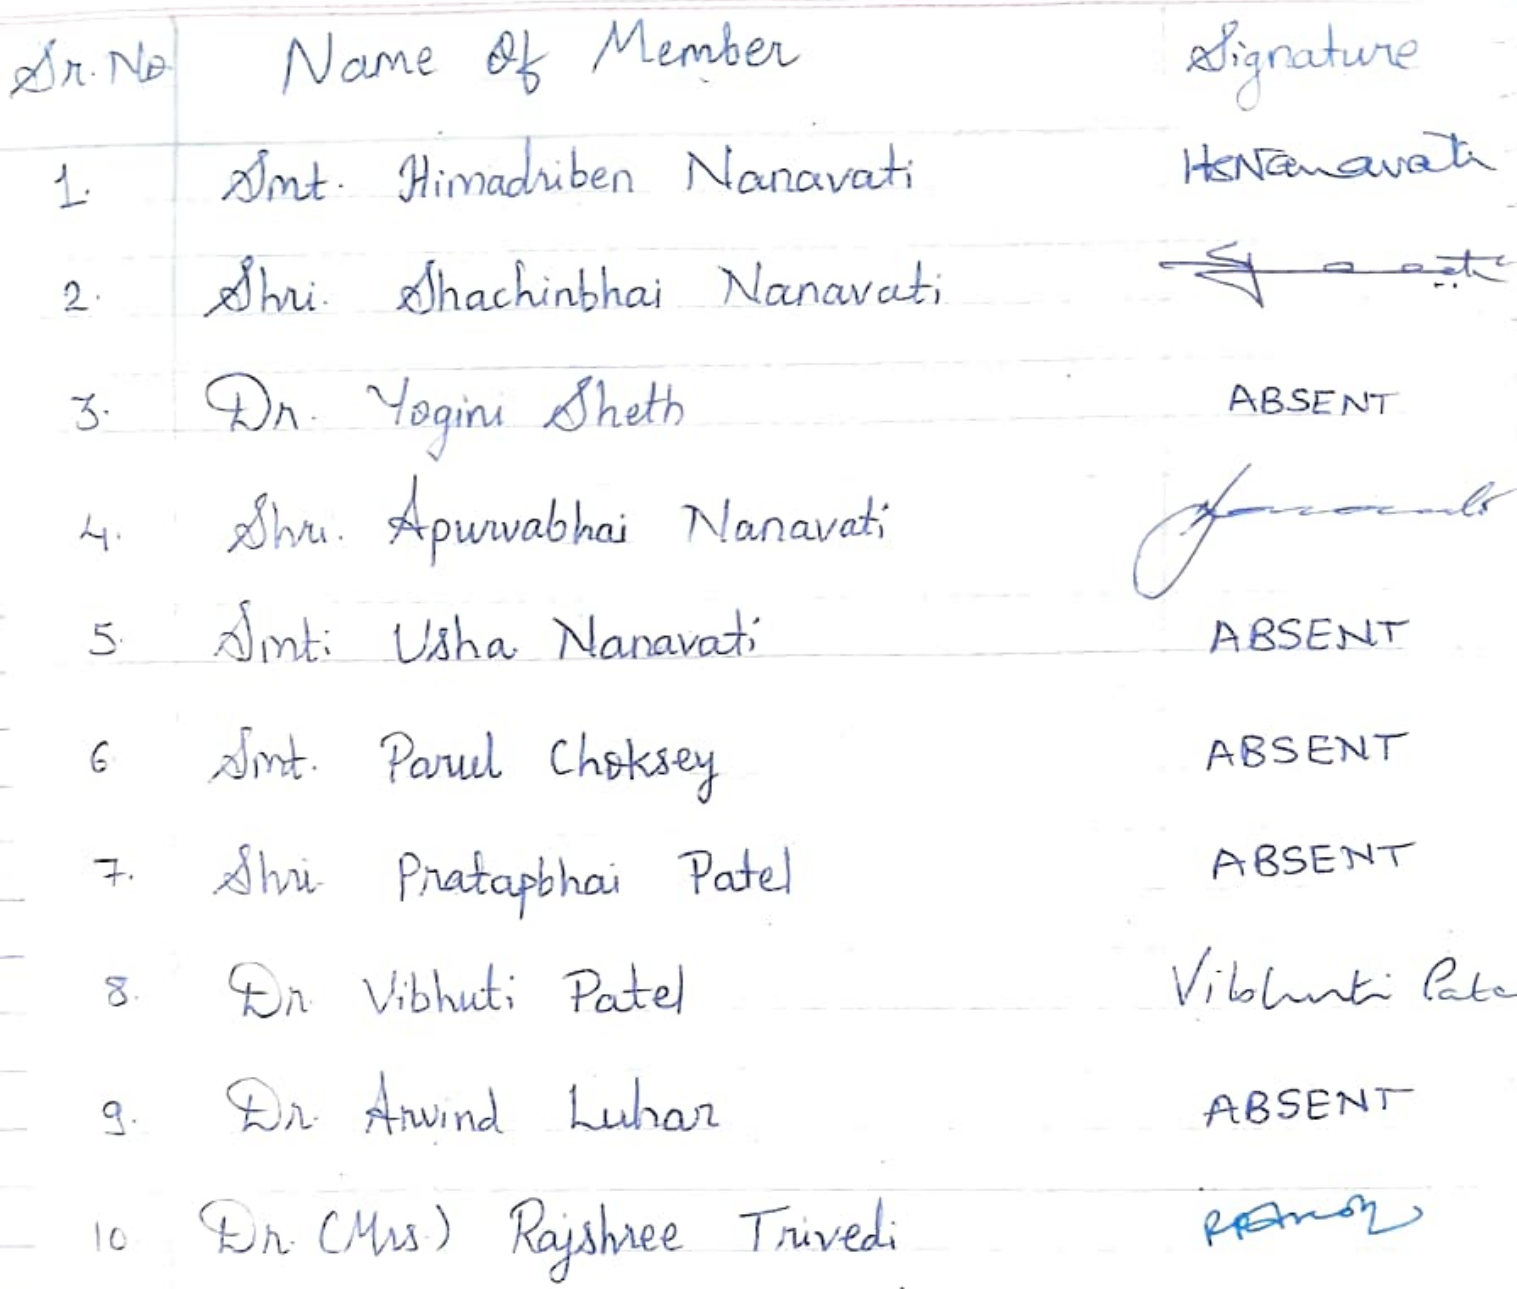 Sr. No Name Of Member Signature
1. Smt. Himadriben Nanavati HSNanavati
2. Shri. Shachinbhai Nanavati
3. Dr. Yogini Sheth ABSENT
4. Shri. Apurvabhai Nanavati
5. Smt: Usha Nanavati ABSENT
6 Smt. Parul Choksey ABSENT
7. Shri Pratapbhai Patel ABSENT
8. Dr Vibhuti Patel Vibhuti Pate
9. Dr. Arvind Luhar ABSENT
10 Dr. (Mrs.) Rajshree Trivedi